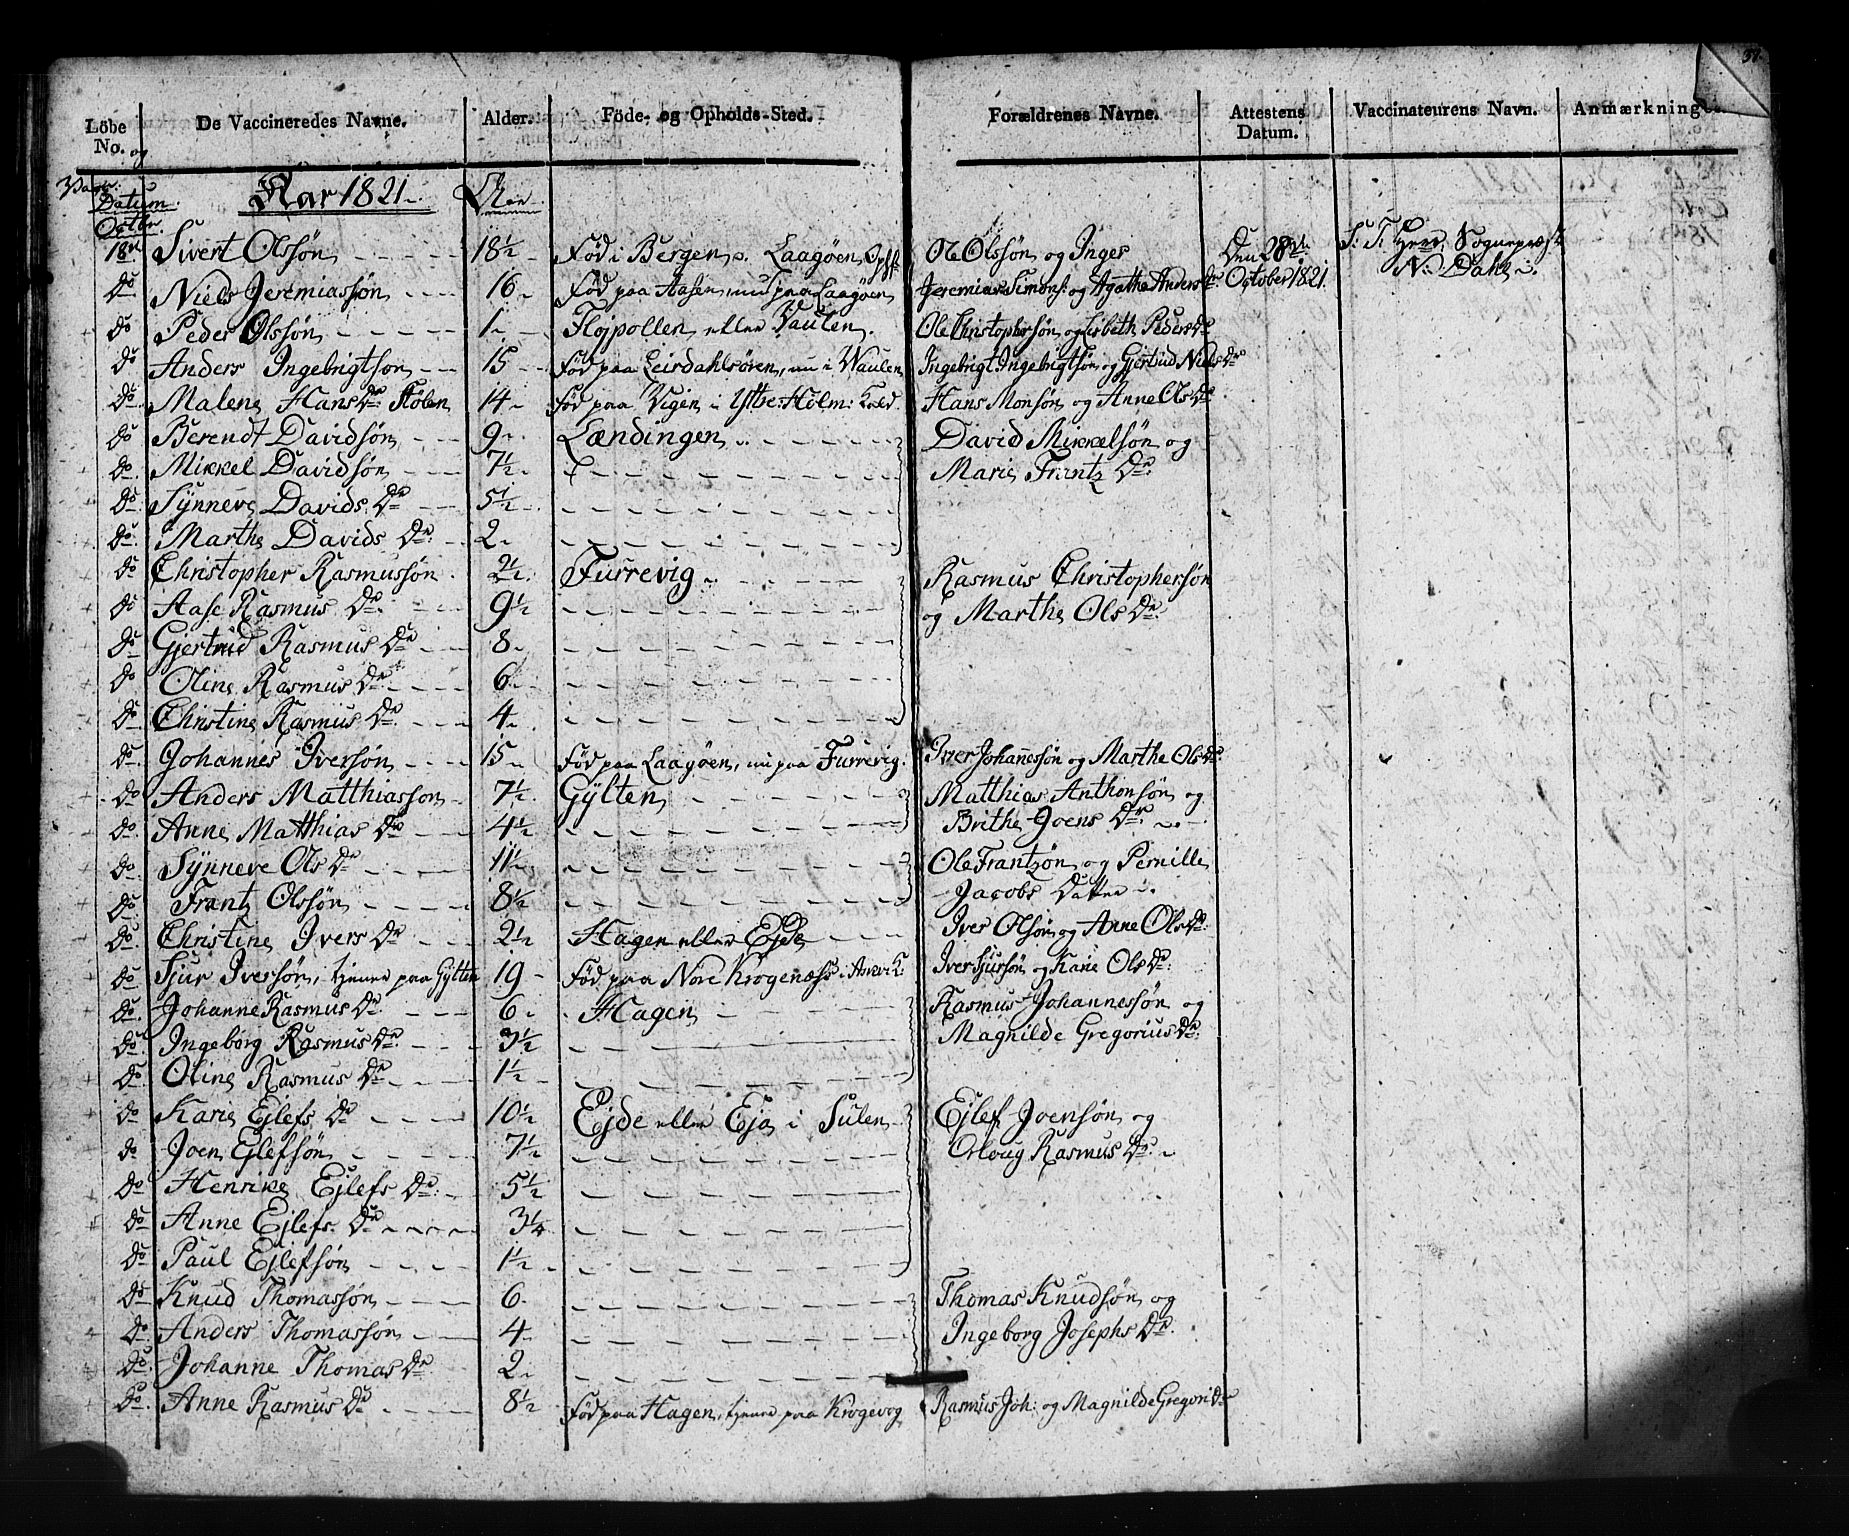 37.
Löbe No. og De Vaccineredes Navne. Alder. Föde- og Opholds-Sted. Forældrenes Navne. Attestens Datum. Vaccinateurens Navn. Anmærkninger.
Datum. Aar 1821. Aar
Octbr.
18de Sivert Olssøn 18½ Fød i Bergen, Laagøen Opf. Ole Olssøn og Inges Den 28de S: T: Herr Sognepræst
Do Niels Jeremiassøn 16 Fød paa Aasen, nu paa Laagøen Jeremias Simons: og Agathe Anders Dr October 1821. N. Dahl
Do Peder Olssøn 1 Flojpollen eller Vaulen. Ole Christophersøn og Lisbeth Peders Dr
Do Anders Ingebrigtson 15 Fød paa Leirdahlsøren, nu i Waulen Ingebrigt Ingebrigtsøn og Gjertrud Niels Dr
Do Malene Hans Dr Stølen 14 Fød paa Vigen i Ytbe: Holm: Kald. Hans Monsøn og Anne Ols Dr
Do Berendt Davidsøn 9 Lændingen David Mikkelsøn og
Do Mikkel Davidsøn 7½ Marie Frantz Dr
Do Synneve Davids Dr 5½
Do Marthe Davids Dr 2
Do Christopher Rasmussøn 2½ Furrevig Rasmus Christophersøn
Do Aase Rasmus Dr 9½ og Marthe Ols Dr
Do Gjertrud Rasmus Dr 8
Do Oline Rasmus Dr 6
Do Christine Rasmus Dr 4
Do Johannes Iversøn 15 Fød paa Laagøen, nu paa Furrevig. Iver Johannessøn og Marthe Ols Dr
Do Anders Matthiasson 7½ Gylten Matthias Anthonsøn og
Do Anne Matthias Dr 4½ Brithe Joens Dr
Do Synneve Ols Dr 11½ Ole Frantzøn og Pernille
Do Frantz Olssøn 8½ Jacobs Datter
Do Christine Ivers Dr 2½ Hagen eller Ejde Iver Olsøn og Anne Ols Dr
Do Sjur Iversøn, tjener paa Gylten 19 Fød paa Nore Krogenæss i Iver Sjursøn og Karie Ols Dr
Do Johanne Rasmus Dr 6 Hagen Rasmus Johannessøn og
Do Ingeborg Rasmus Dr 3½ Magnilde Gregorius Dr
Do Oline Rasmus Dr 1½
Do Karie Ejlefs Dr 10½ Ejde eller Eje i Sulen Ejlef Joensøn og
Do Joen Ejlefsøn 7½ Oloug Rasmus Dr
Do Henrike Ejlefs Dr 5½
Do Anne Ejlefs Dr 3¼
Do Paul Ejlefsøn 1½
Do Knud Thomassøn 6 Thomas Knudsøn og
Do Anders Thomassøn 4 Ingeborg Josephs Dr
Do Johanne Thomas Dr 2
Do Anne Rasmus Dr 8½ Fød paa Hagen, tjener paa Krogevog Rasmus Joh: og Magnilde Gregori Dr